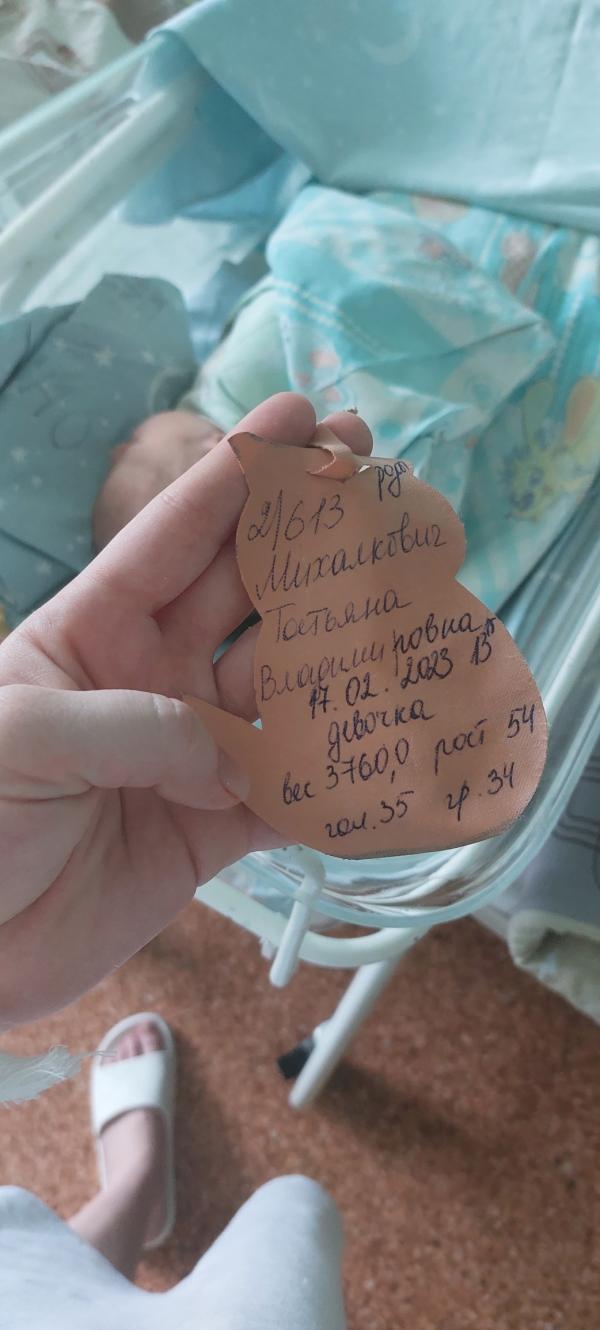 2/613 родо
Михалкович
Татьяна
Владимировна
17.02.2023 13¹⁵
девочка
вес 3760,0 рост 54
гол.35 гр.34